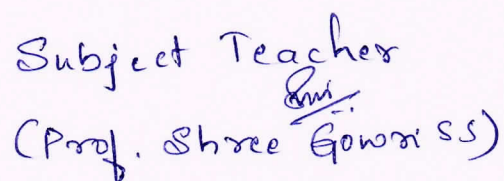 Subject Teacher
(Prof. Shree Gowri SS)